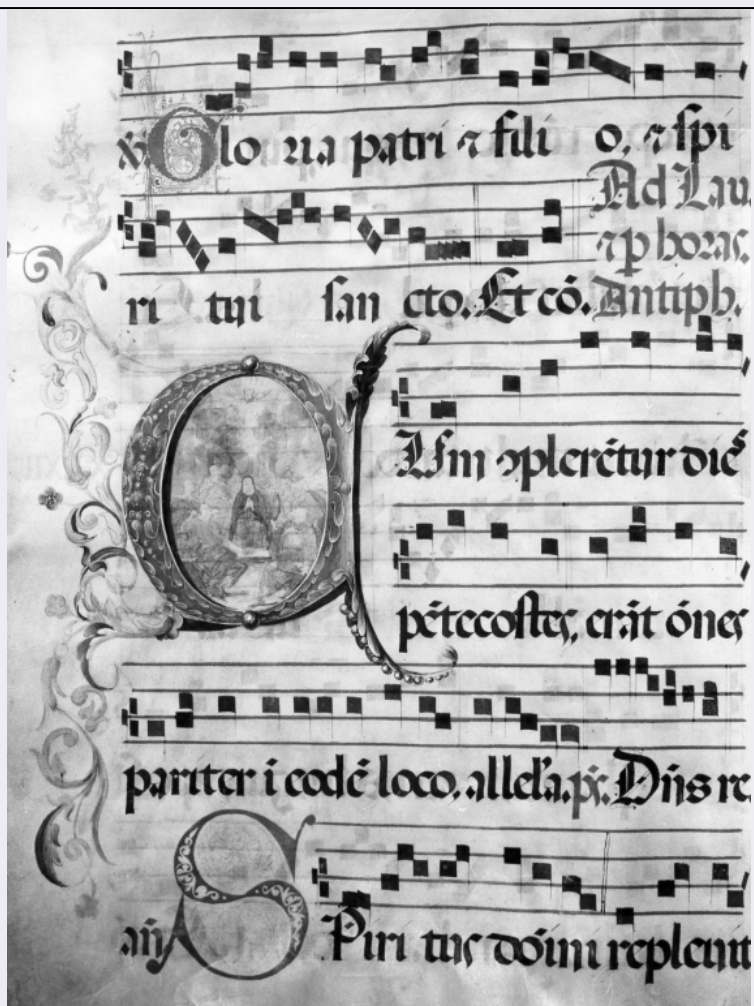 ℣ Glo ria patri ⁊ fili o, ⁊ spi
Ad Lau
⁊ p horas.
ri tui san cto. Et cō. Antiph.
CUm ꝯplerētur dies
pētecostes, erāt ōnes
pariter ī eodē loco, allel'a. ps. Dñs re
añ SPiri tus dōini repleuit